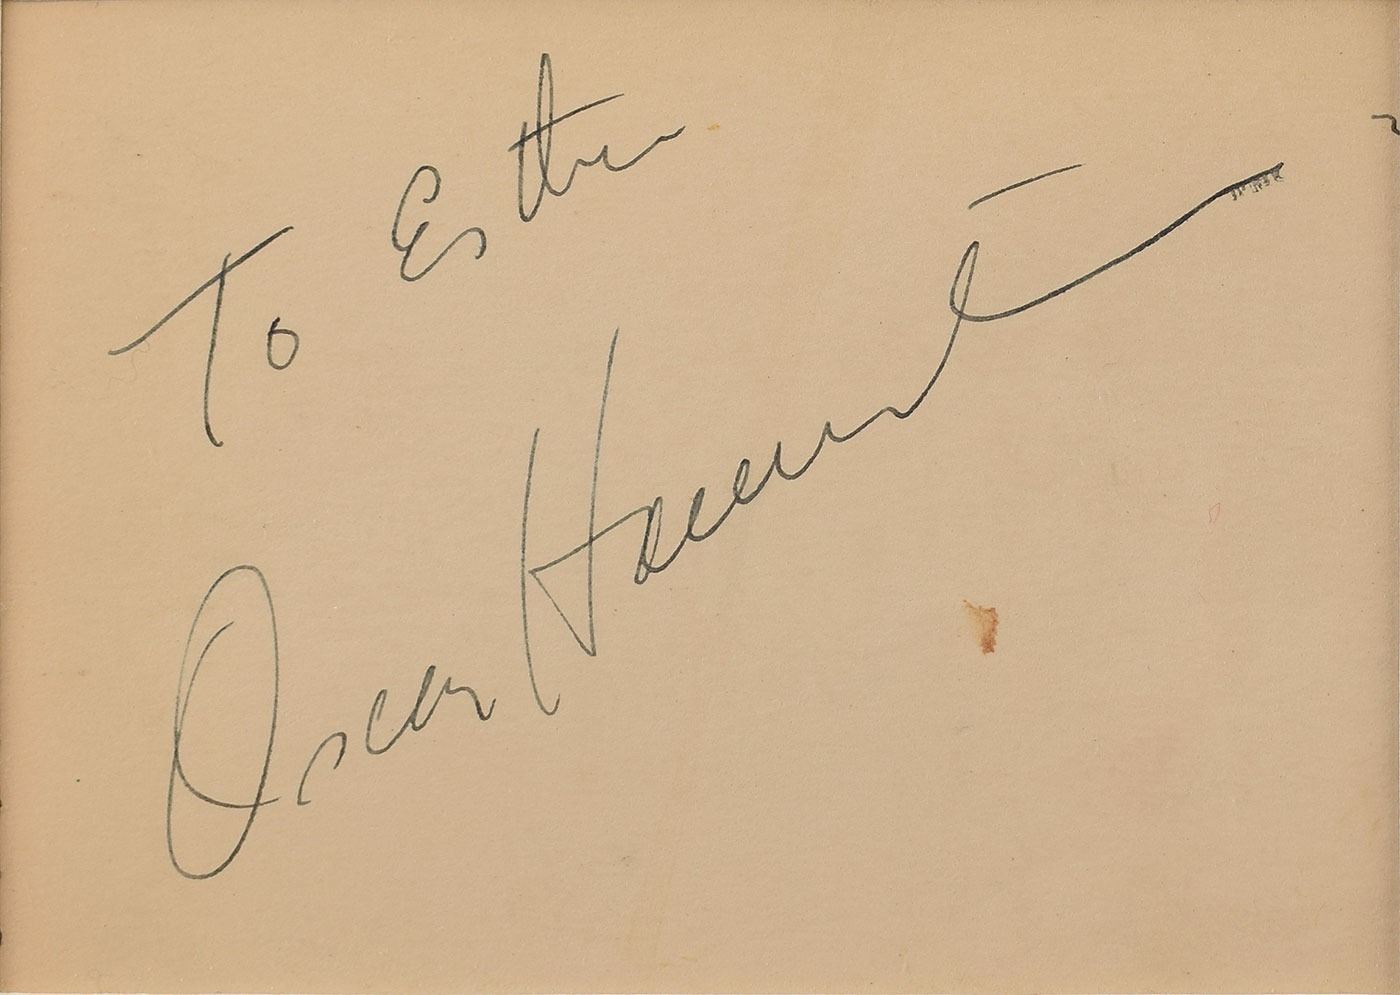 To Esther
Oscar Hammerstein